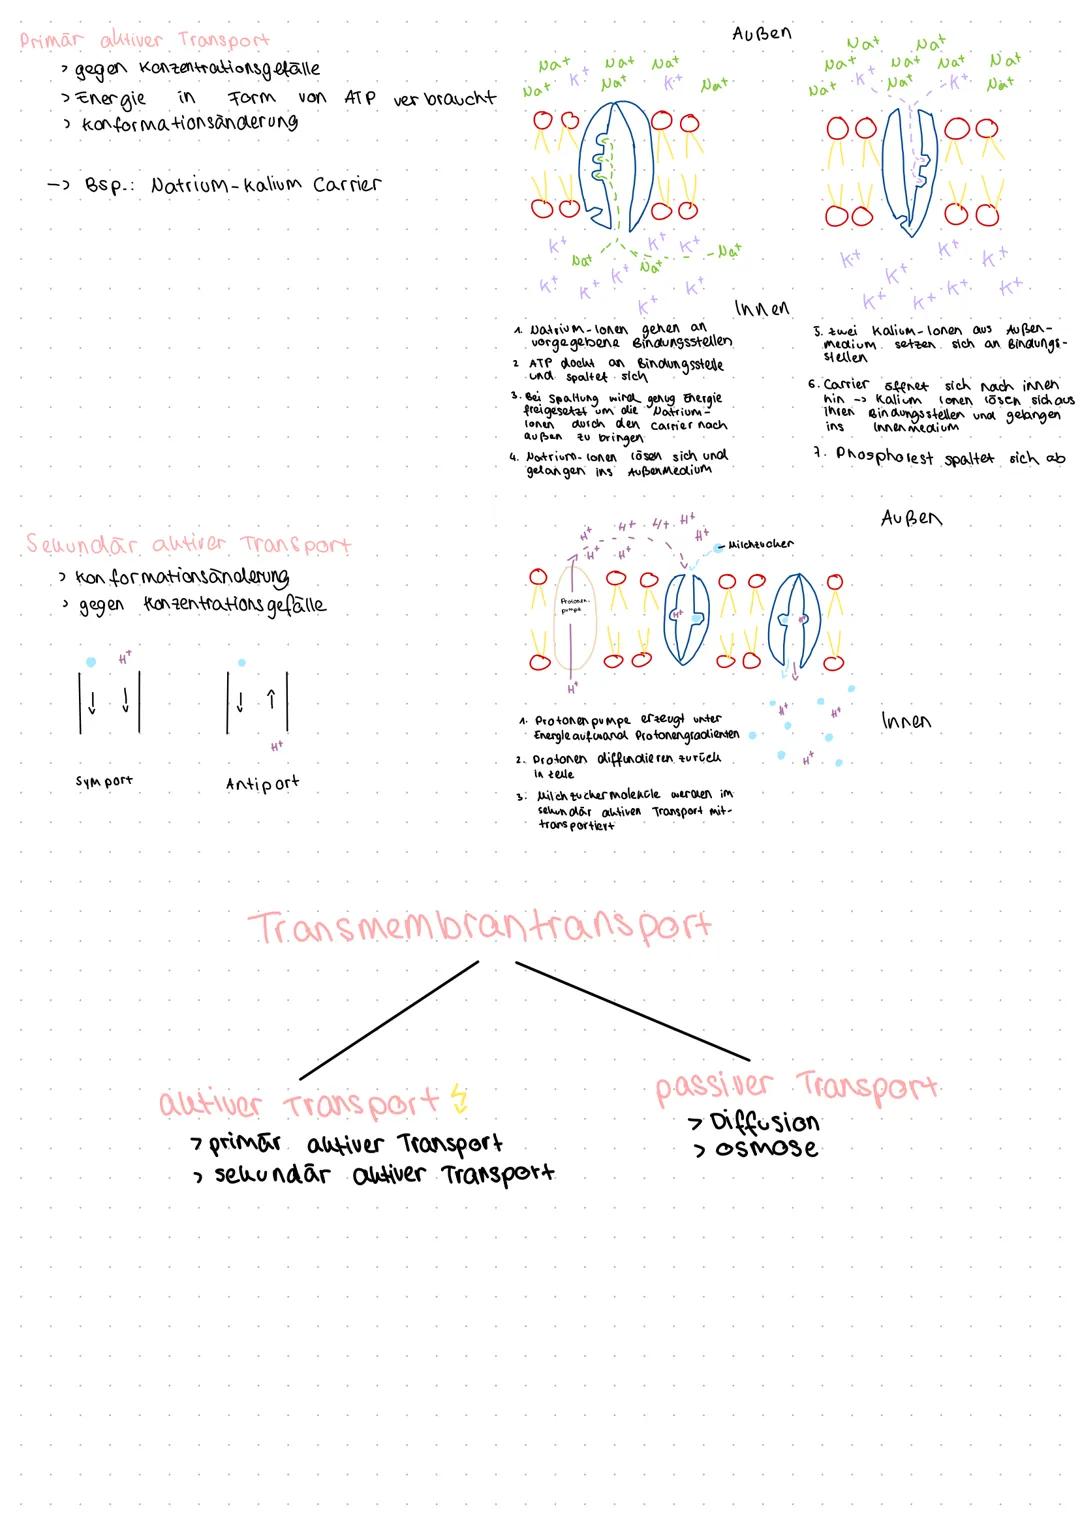 Primär aktiver Transport
> gegen Konzentrationsgefälle
> Energie in Form von ATP verbraucht
> Konformationsänderung
-> Bsp.: Natrium-Kalium Carrier
Außen
Na+ Na+ Na+
Na+ K+ Na+ K+ Na+
K+ K+ K+
Na+ Na+ -Na+
K+ K+ K+ K+
K+
Innen
1. Natrium-Ionen gehen an
vorgegebene Bindungsstellen
2 ATP dockt an Bindungsstelle
und spaltet sich
3. Bei Spaltung wird genug Energie
freigesetzt um die Natrium-
Ionen durch den Carrier nach
außen zu bringen
4. Natrium-Ionen lösen sich und
gelangen ins Außenmedium
Na+ Na+
Na+ Na+ Na+ Na+
Na+ K+ Na+ -K+ Na+
K+ K+ K+
K+ K+ K+
K+ K+ K+
5. Zwei Kalium-Ionen aus Außen-
medium setzen sich an Bindungs-
stellen
6. Carrier öffnet sich nach innen
hin -> Kalium Ionen lösen sich aus
ihren Bindungsstellen und gelangen
ins Innenmedium
7. Phosphatrest spaltet sich ab
Sekundär aktiver Transport
> Konformationsänderung
> gegen Konzentrationsgefälle
H+
↓ ↓
Symport
↓ ↑
H+
Antiport
Außen
H+ H+ H+ H+
H+ H+ H+
Milchzucker
Protonen-
pumpe
H+ H+
H+
H+ H+
H+
Innen
1. Protonenpumpe erzeugt unter
Energieaufwand Protonengradienten
2. Protonen diffundieren zurück
in Zelle
3. Milchzuckermoleküle werden im
sekundär aktiven Transport mit-
transportiert
Transmembrantransport
aktiver Transport
> primär aktiver Transport
> sekundär aktiver Transport
passiver Transport
> Diffusion
> Osmose